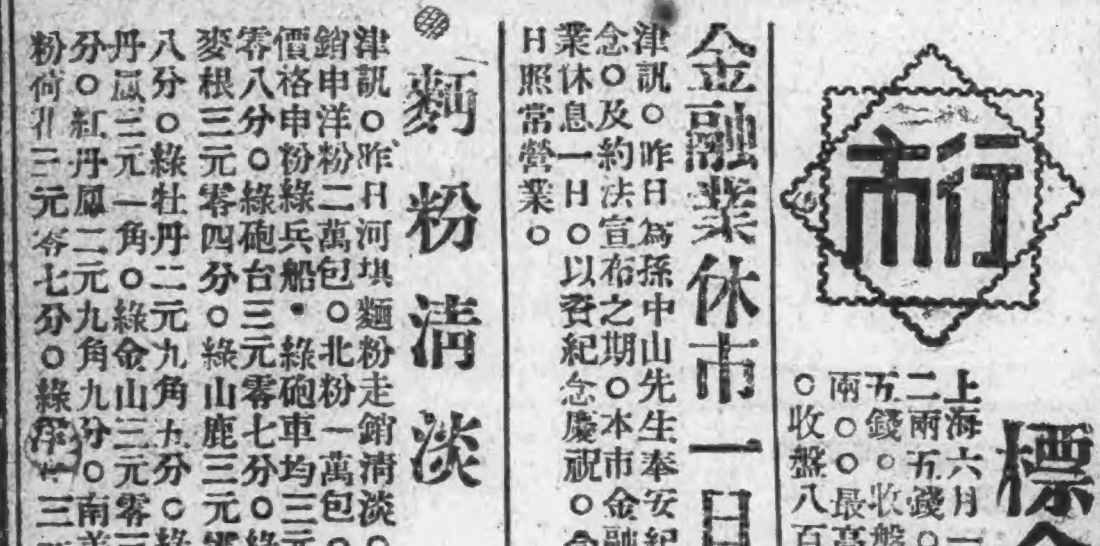 行市
標
上海六月一
二兩五錢〇
五錢〇收盤
兩〇〇最高
〇收盤八百
金融業休市一日
津訊〇昨日為孫中山先生奉安紀
念〇及約法宣布之期〇本市金融
業休息一日〇以資紀念慶祝〇
日照常營業〇
麫粉清淡
津訊〇昨日河垻麵粉走銷清淡〇
銷申洋粉二萬包〇北粉一萬包〇
價格申粉綠兵船・綠砲車均三元
零八分〇綠砲台三元零七分〇綠
麥根三元零四分〇綠山鹿三元
八分〇綠牡丹二元九角九分〇綠
丹鳳三元一角〇綠金山三元零
分〇紅丹鳳二元九角九分〇南
粉荷三元零七分〇綠三